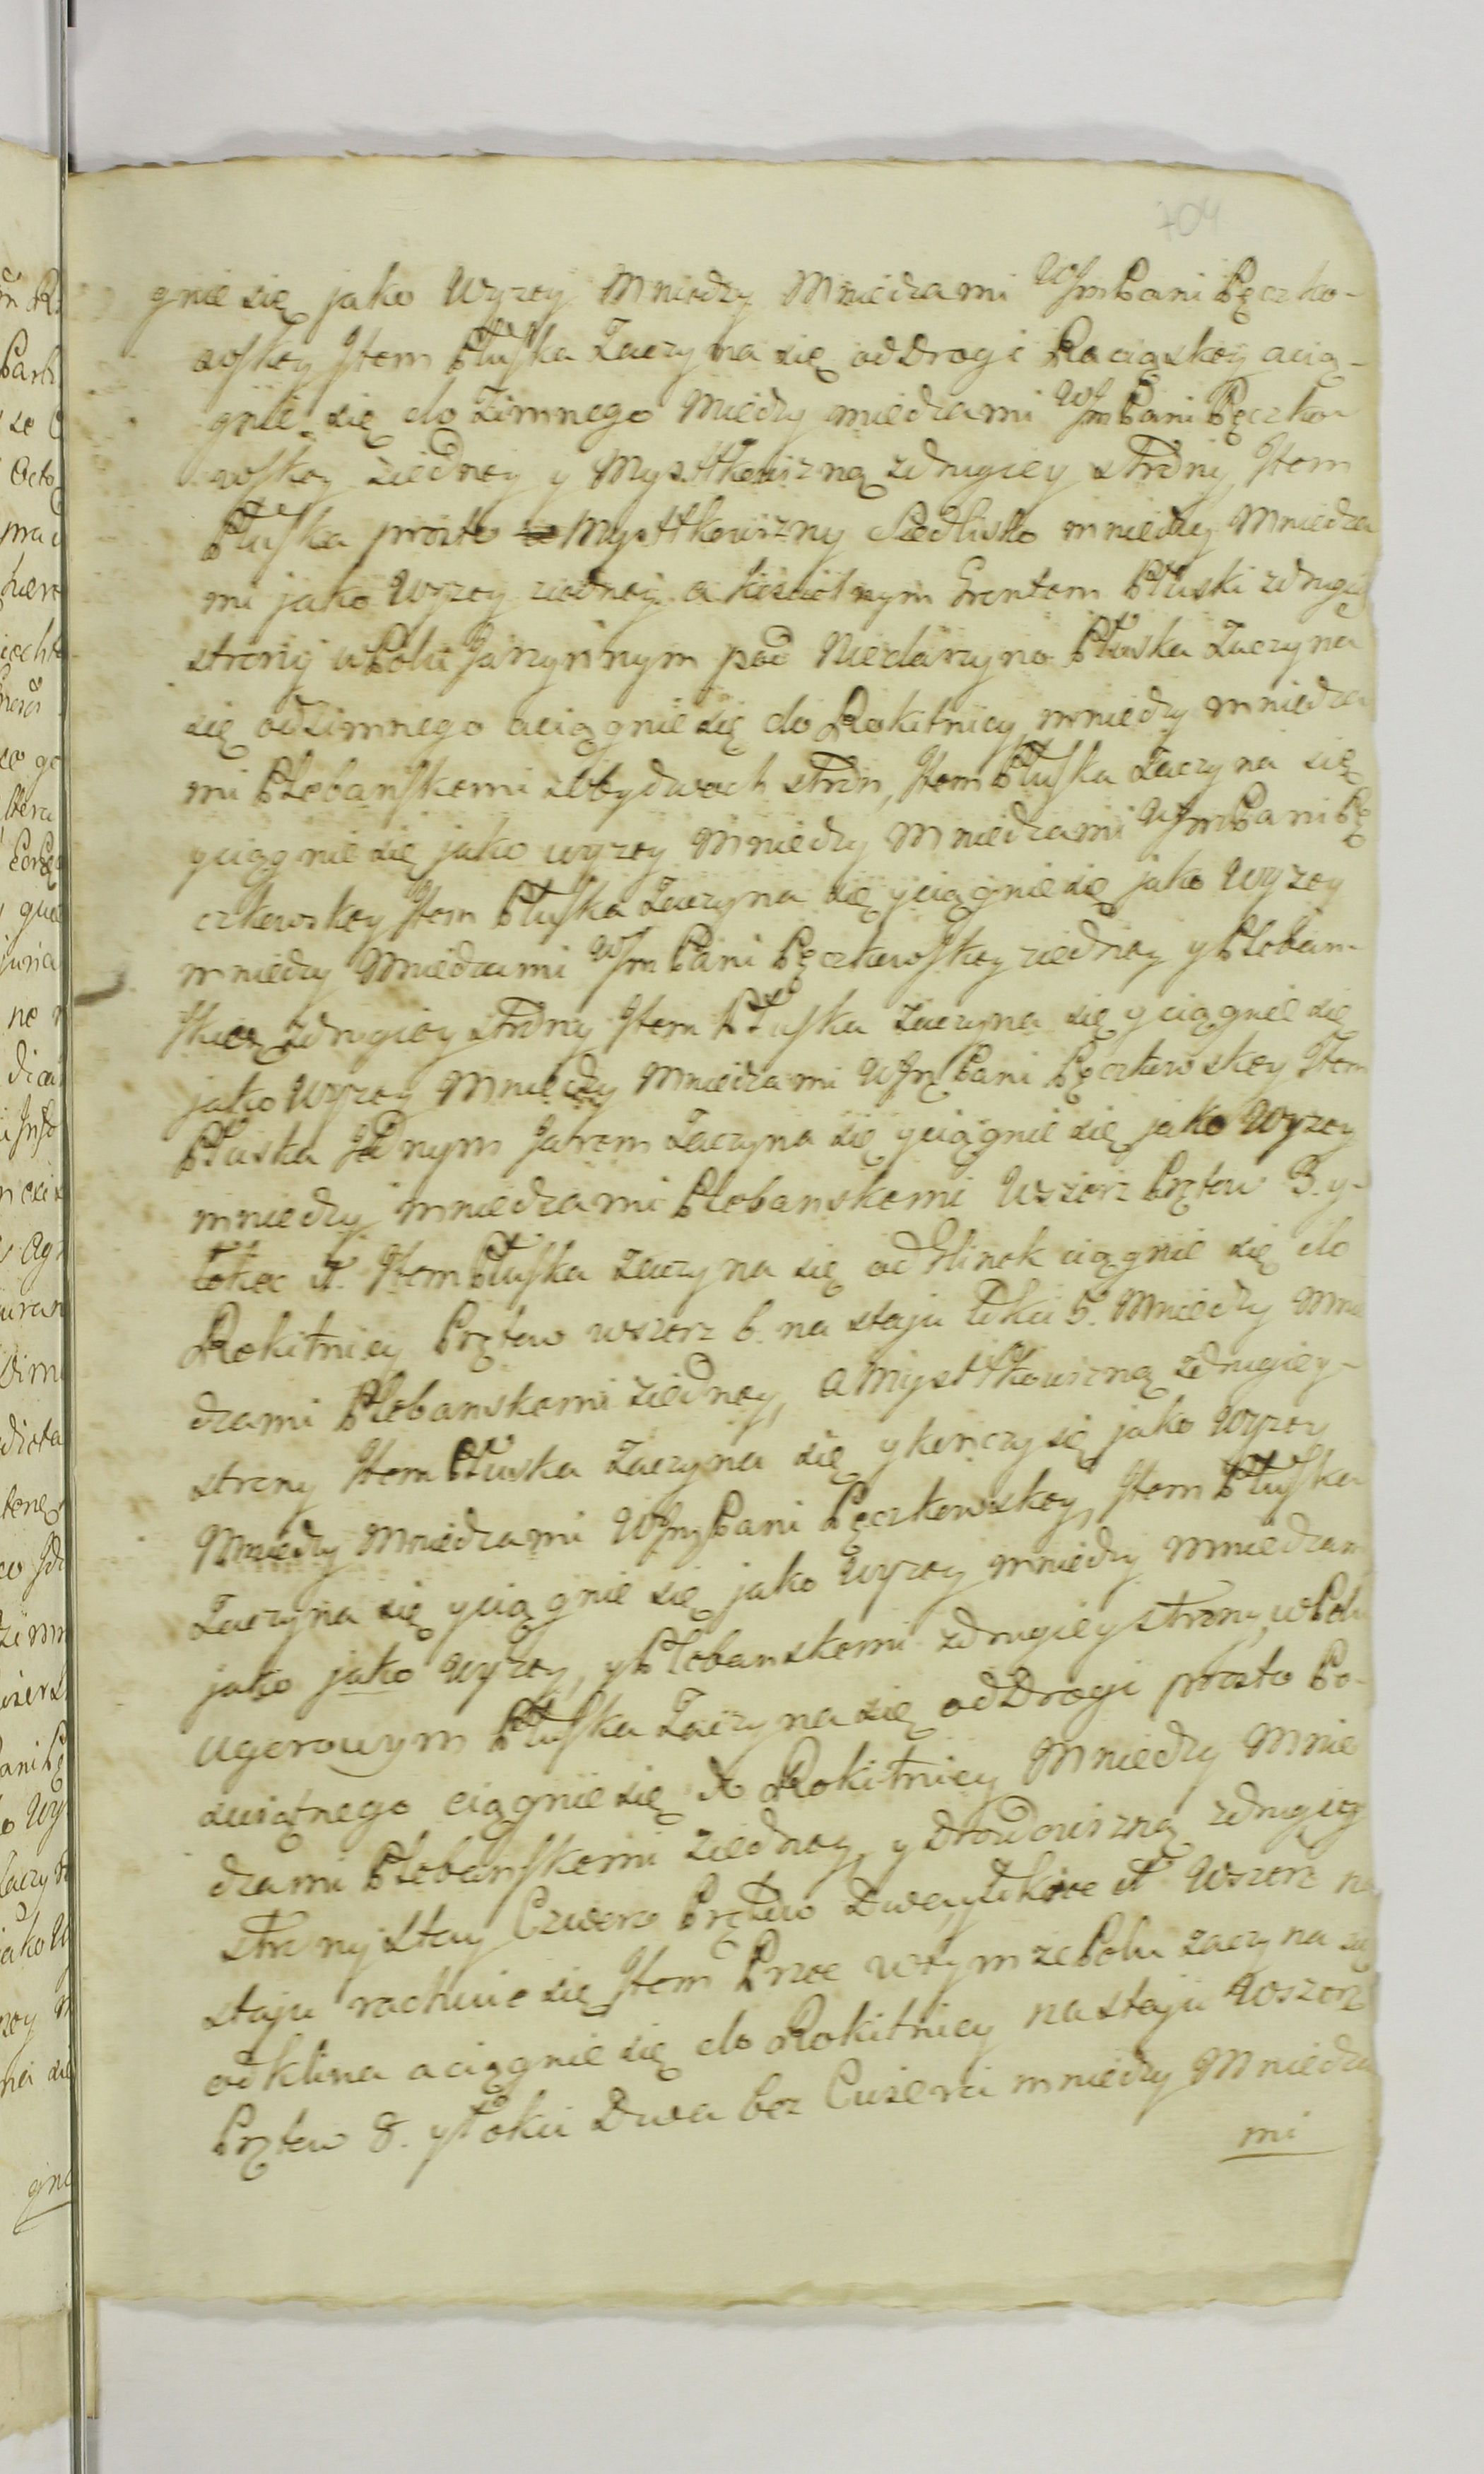 704
gnie się jako Wyzey Mniedzy Mniedzami WJmPani Pęczko-
wskey Item Płuska Zaczyna się od Drogi Raciąskey acią-
gnie się do Zimnego Miedzy miedzami WJmPani Pęczko
wskey ziedney y Mysttkowizną zdrugiey strony Item
Płuska prosto Mysttkowizny Siedlisko mniedzy Mniedza
mi jako Wyzey ziedney a kościelnym Gruntem Płuski zdrugiey
strony wPolu Jarzynnym pod Niedarzyno Płuska Zaczyna
się odzimnego aciągnie się do Rokitnicy mniedzy mniedza
mi Plebanskemi zobydwoch stron, Item Płuska Zaczyna się
yciągnie się jako wyzey Mniedzy Mniedzami WJmPani Pę
czkowskey Item Płuska Zaczyna się yciągnie się jako Wyzey
mniedzy Mniedzami WJm Pani Pęczkowskey ziedney yPleban-
ską zdrugiey strony Item Płuska Zaczyna się yciągnie się
jako Wyzey Mniedzy Mniedzami WJmPani Pęczkowskey Item
Płuska Jednym Jarem Zaczyna się yciągnie się jako Wyzey
mniedzy mniedzami Plebanskemi Wszerz Prętow 3. y-
łokec Item Płuska Zaczyna się od Glinek ciągnie się do
Rokitnicy Prętow wszerz 6. na staju łokci 5. Mniedzy Mnie
dzami Plebanskemi ziedney, a Mysttkowizną zdrugiey-
strony Item Płuska Zaczyna się ykończy się jako Wyzey
Mniedzy Mniedzami WJmPani Pęczkowskey, Item Płuska
Zaczyna się yciągnie się jako Wyzey mniedzy mniedzam
jako jako Wyzey, yPlebanskemi zdrugiey strony, wPolu
Ugorowym Płuska Zaczyna się odDrogi prosto Po-
swiątnego ciągnie się do Rokitnicy Mniedzy Mnie
dzami Plebanskemi ziedney, y Drozdowizną zdrugiey
strony Stay Czworo Prętow Dwa, Wszerz na
staju rachuie się Item wtymze Polu zaczyna się
odklina aciągnie się do Rokitnicy nastaju Wszerz
Prętow 8. yłokci Dwa bez Cwierci mniedzy Mniedza
mi